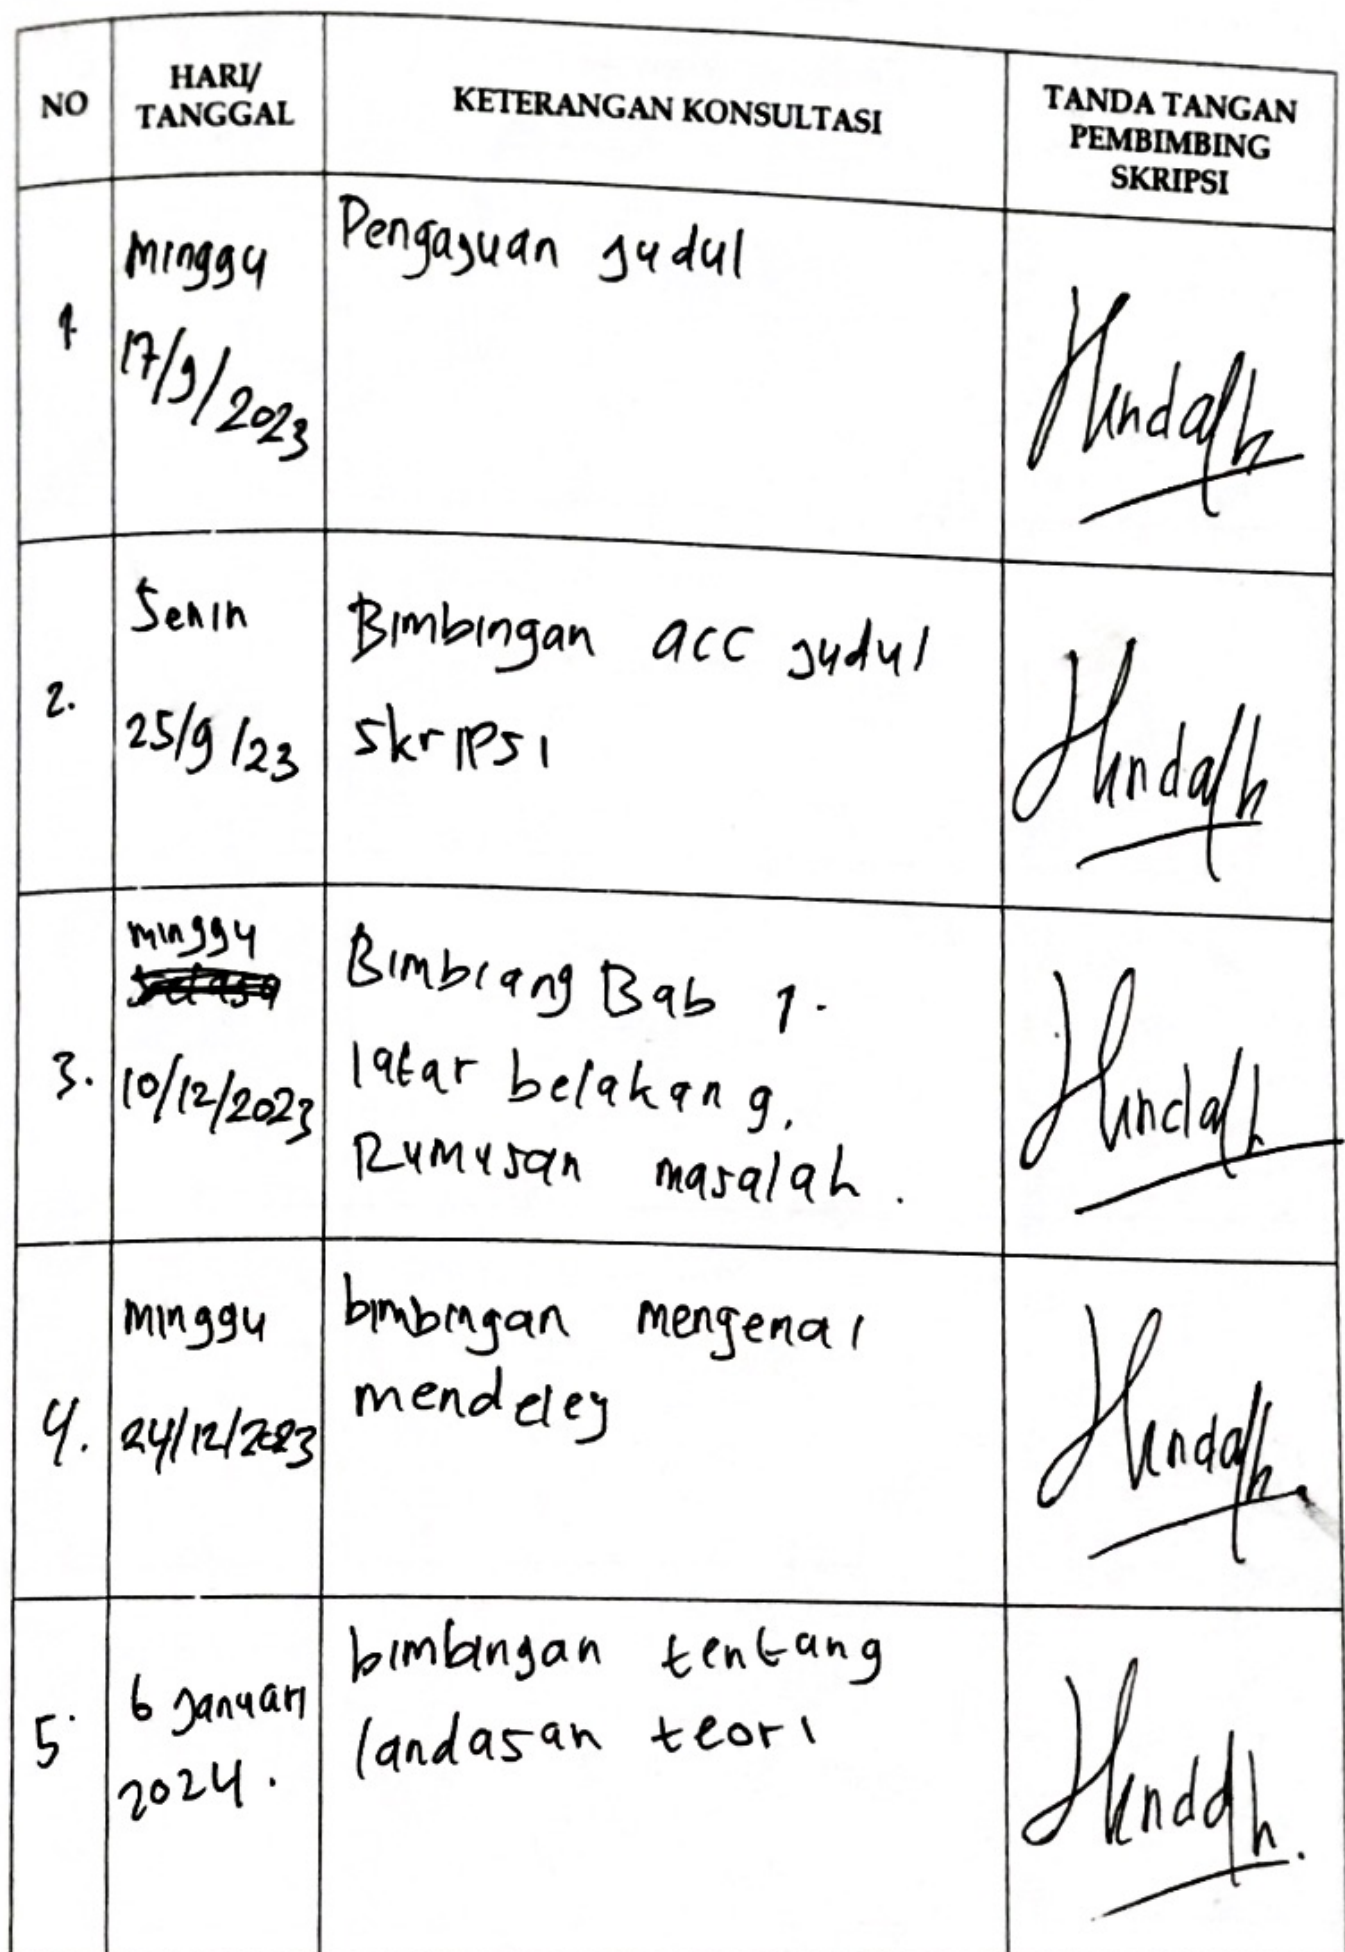 NO
HARI/
TANGGAL
KETERANGAN KONSULTASI
TANDA TANGAN
PEMBIMBING
SKRIPSI
1
Minggu
17/9/2023
Pengajuan Judul
2.
Senin
25/9/23
Bimbingan acc judul
skripsi
3.
minggu
10/12/2023
Bimbiang Bab 1.
latar belakang,
Rumusan masalah.
4.
minggu
24/12/2023
bimbingan mengenai
mendeley
5.
6 Januari
2024.
bimbingan tentang
landasan teori